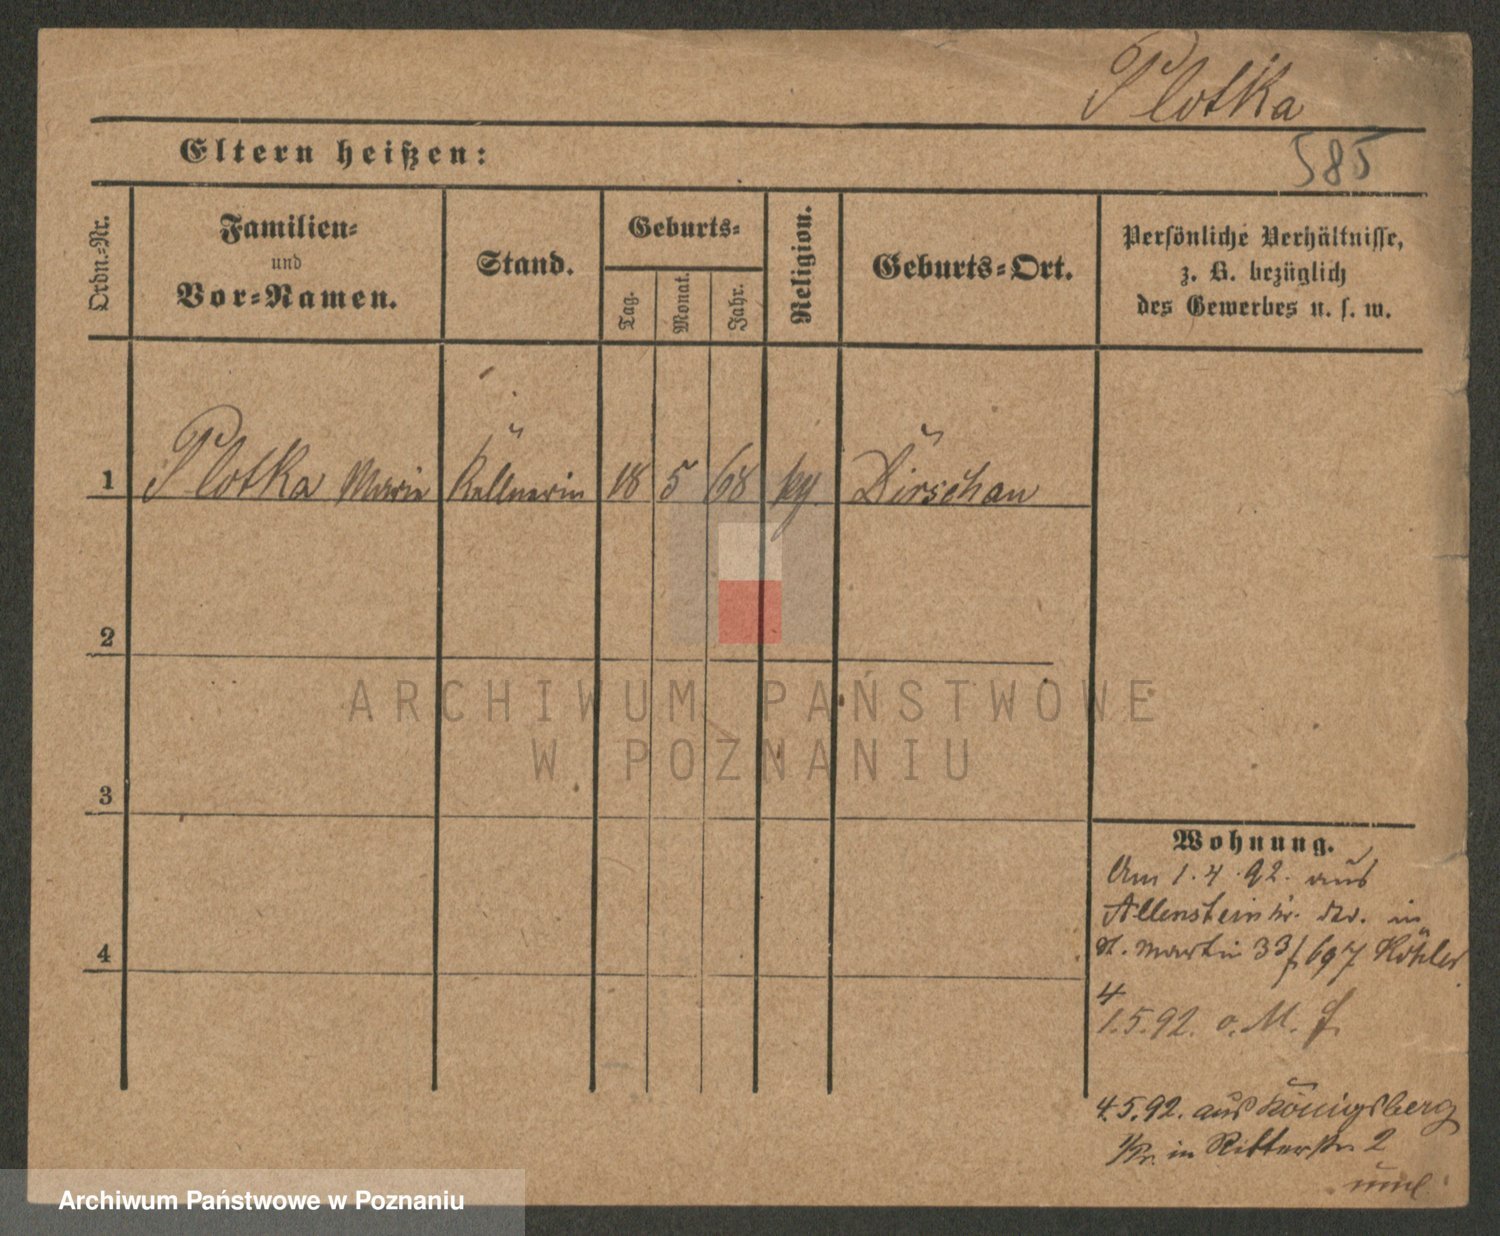 Plotka
Eltern heißen:
585
Ordn.-Nr.
Familien-
und
Vor-Namen.
Stand.
Geburts-
Tag.
Monat.
Jahr.
Religion.
Geburts-Ort.
Persönliche Verhältnisse,
z. B. bezüglich
des Gewerbes u. s. w.
1 Plotka Marie Kellnerin 18 5 68 kg. Dirschau
2
ARCHIWUM PAŃSTWOWE
W POZNANIU
3
Wohnung.
Am 1.4.92. aus
Allenstein in
St. Martin 33 / 697 Köhler
4
4
1.5.92. o. M.
4.5.92. aus Königsberg
i/Pr. in Ritterstr. 2
Archiwum Państwowe w Poznaniu